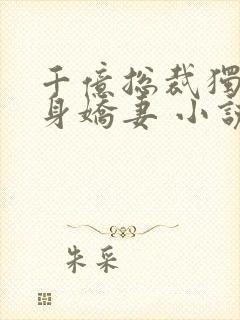 千億總裁獨
身嬌妻 小說
朱采